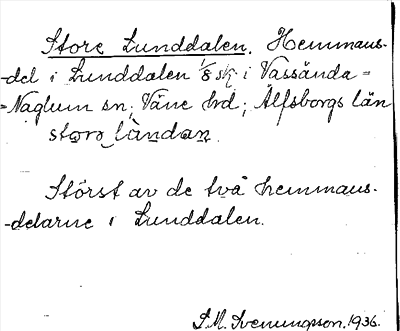 Store Lunddalen. Hemmans-
-del i Lunddalen 1/8 sk. i Vassända=
=Naglum sn, Väne hd; Älfsborgs län
storo làndan.
Störst av de två hemmans-
-delarne i Lunddalen.
S.M. Svenungsson. 1936.